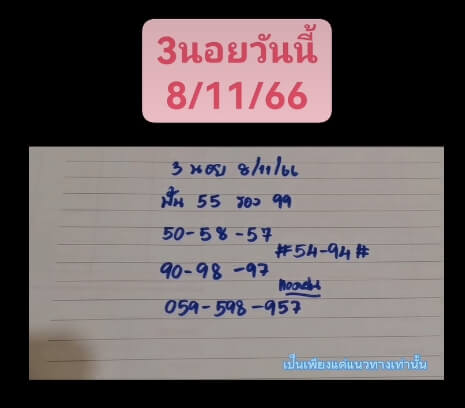 3นอยวันนี้
8/11/66
3 นอย 8/11/66
ฟัน 55 รอง 99
50-58-57
#54-94#
90-98-97
059-598-957
เป็นเพียงแค่แนวทางเท่านั้น